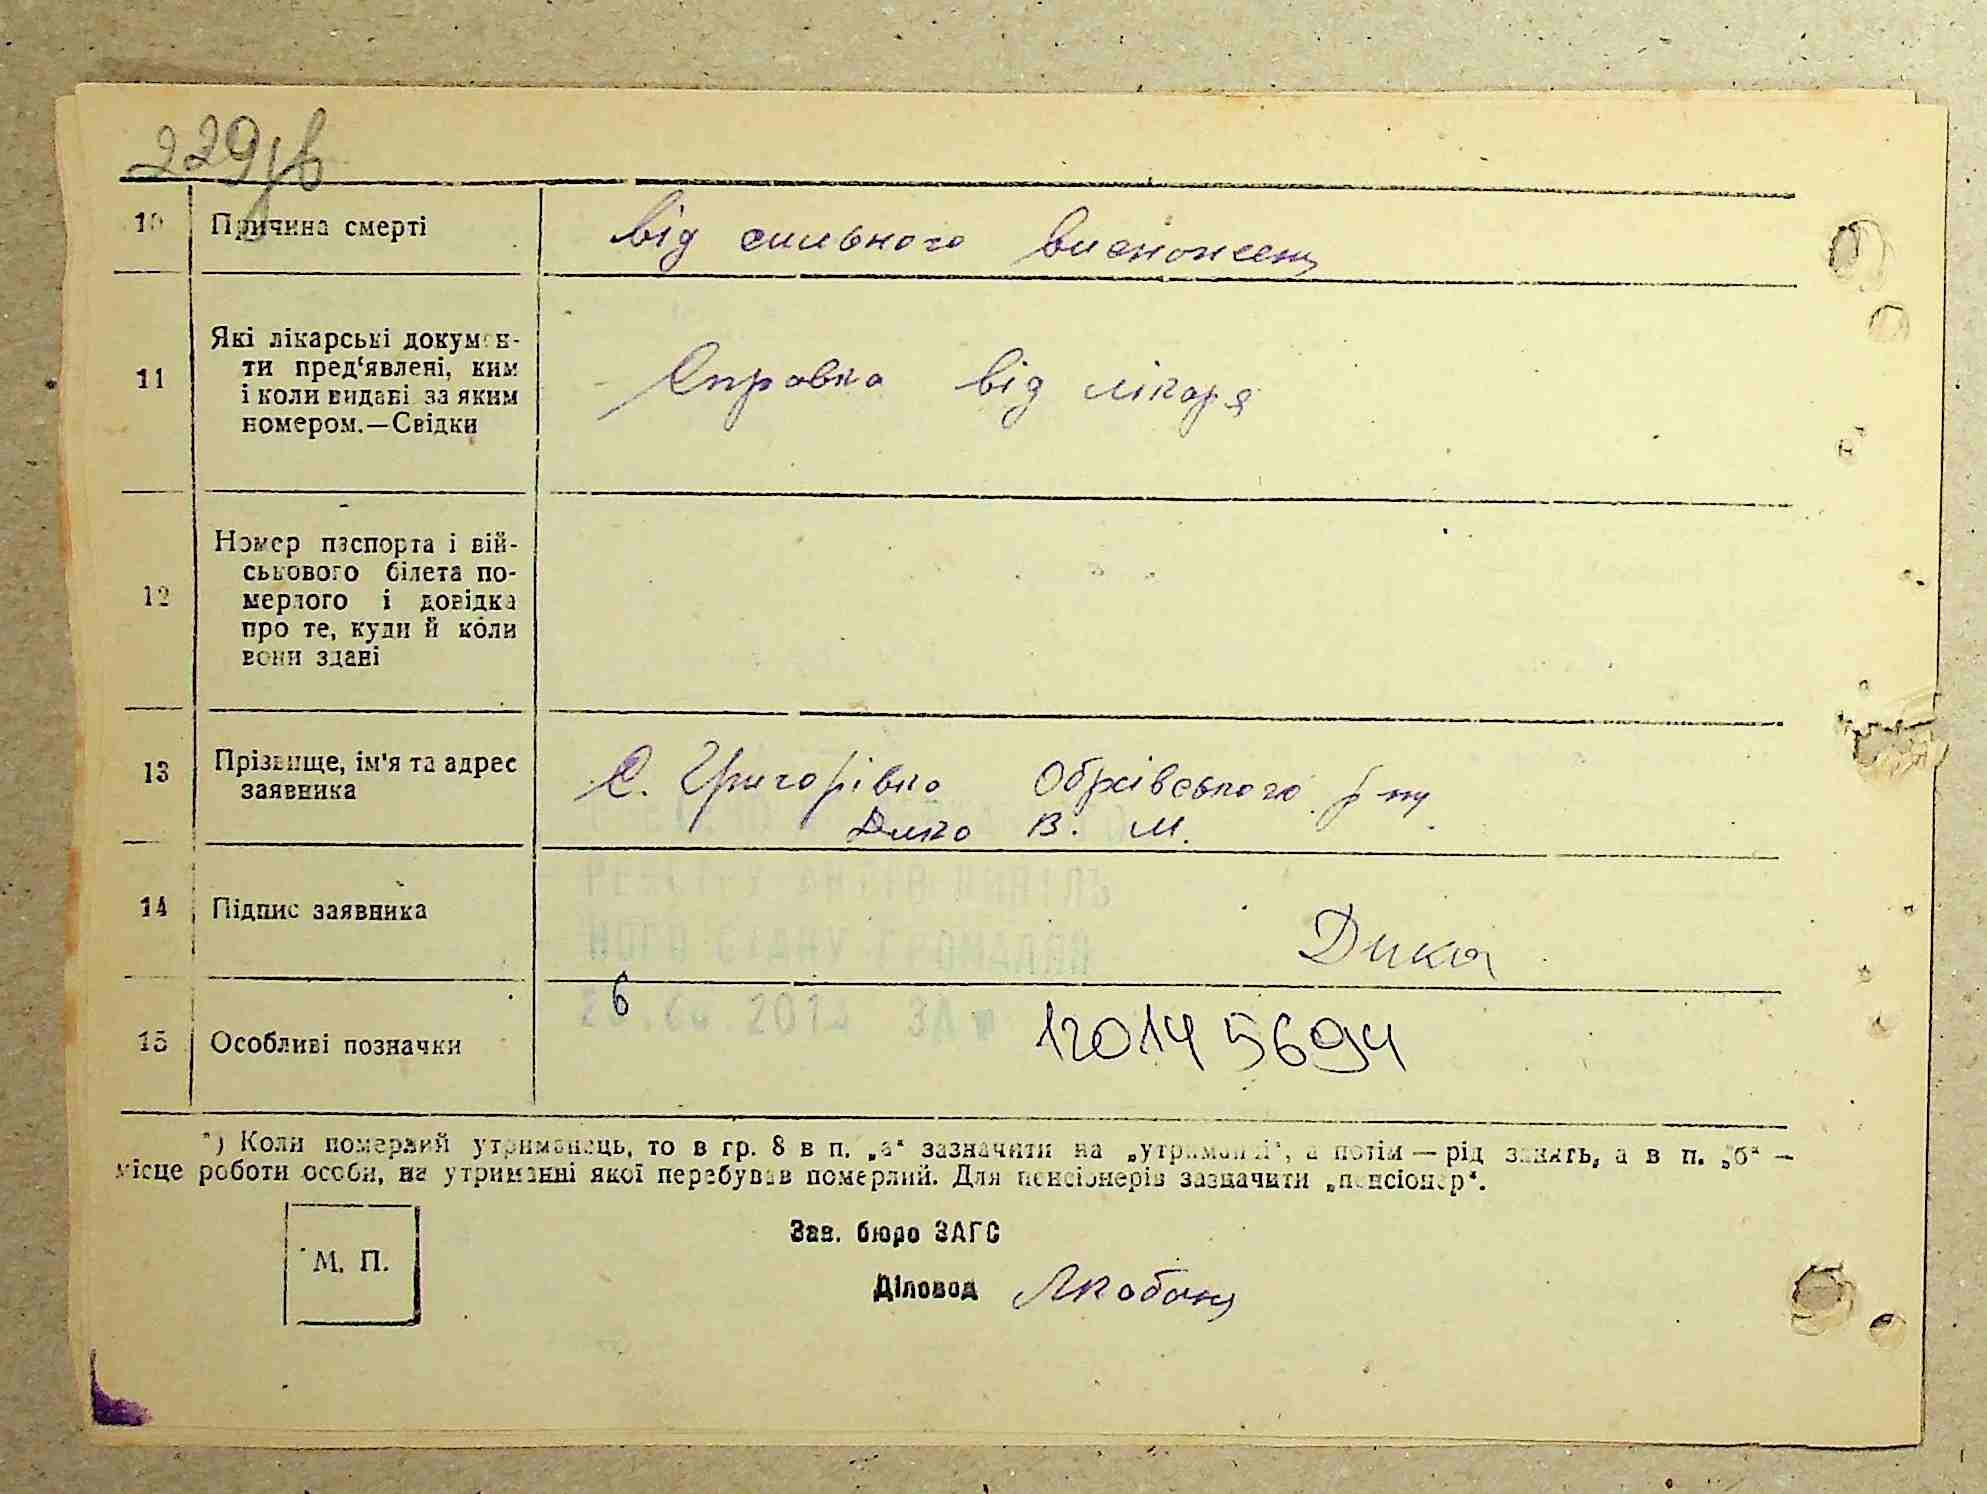 229зв
10 Причина смерті від сильного виснаженн
11 Які лікарські докумен-
ти пред'явлені, ким
і коли видані за яким
номером.—Свідки
Справка від лікаря
12 Номер паспорта і вій-
ськового білета по-
мерлого і довідка
про те, куди й коли
вони здані
13 Прізвище, ім'я та адрес
заявника
С. Григорівка Обухівського р-ну
Дика В. М.
РЕЄСТРУ АКТІВ ЦИВІЛЬ
НОГО СТАНУ ГРОМАДЯН
14 Підпис заявника Дика
15 Особливі позначки 12014 5694
*) Коли померлий утриманець, то в гр. 8 в п. „а“ зазначити на „утриманні“, а потім — рід занять, а в п. „б“ —
місце роботи особи, на утриманні якої перебував померлий. Для пенсіонерів зазначити „пенсіонер“.
М. П.
Зав. бюро ЗАГС
Діловод